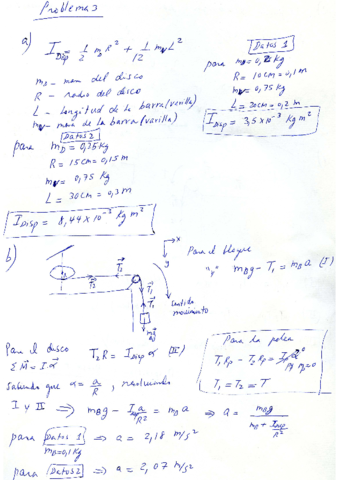 Problema 3
a) I_Disp = 1/2 m_D R² + 1/12 m_v L²
m_D - masa del disco
R - radio del disco
L - longitud de la barra (varilla)
m_v - masa de la barra (varilla)
Datos 1
para
R = 10cm = 0,1m
m_v = 0,75 kg
I_Disp = 3,5×10⁻³ kg m²
Datos 2
para m_D = 0,75 kg
R = 15cm = 0,15m
m_v = 0,75 kg
L = 30cm = 0,3m
I_Disp = 8,44×10⁻³ kg m²
b)
x
y
T₂
T₂
T₁
T₁
sentido
movimiento
Para el bloque
"y" m_B g - T₁ = m_B a (I)
Para la polea
T₁R_p - T₂R_p =
T₁ = T₂ = T
Para el disco T₂R = I_Disp α (II)
ΣM = Iα
Sabiendo que α = a/R, resolviendo
I y II ⟹ m_B g - I_Disp a/R² = m_B a ⟹ a = m_B g / (m_B + I_Disp/R²)
para Datos 1 ⟹ a = 2,18 m/s²
m_B = 0,1 kg
para Datos 2 ⟹ a = 2,07 m/s²